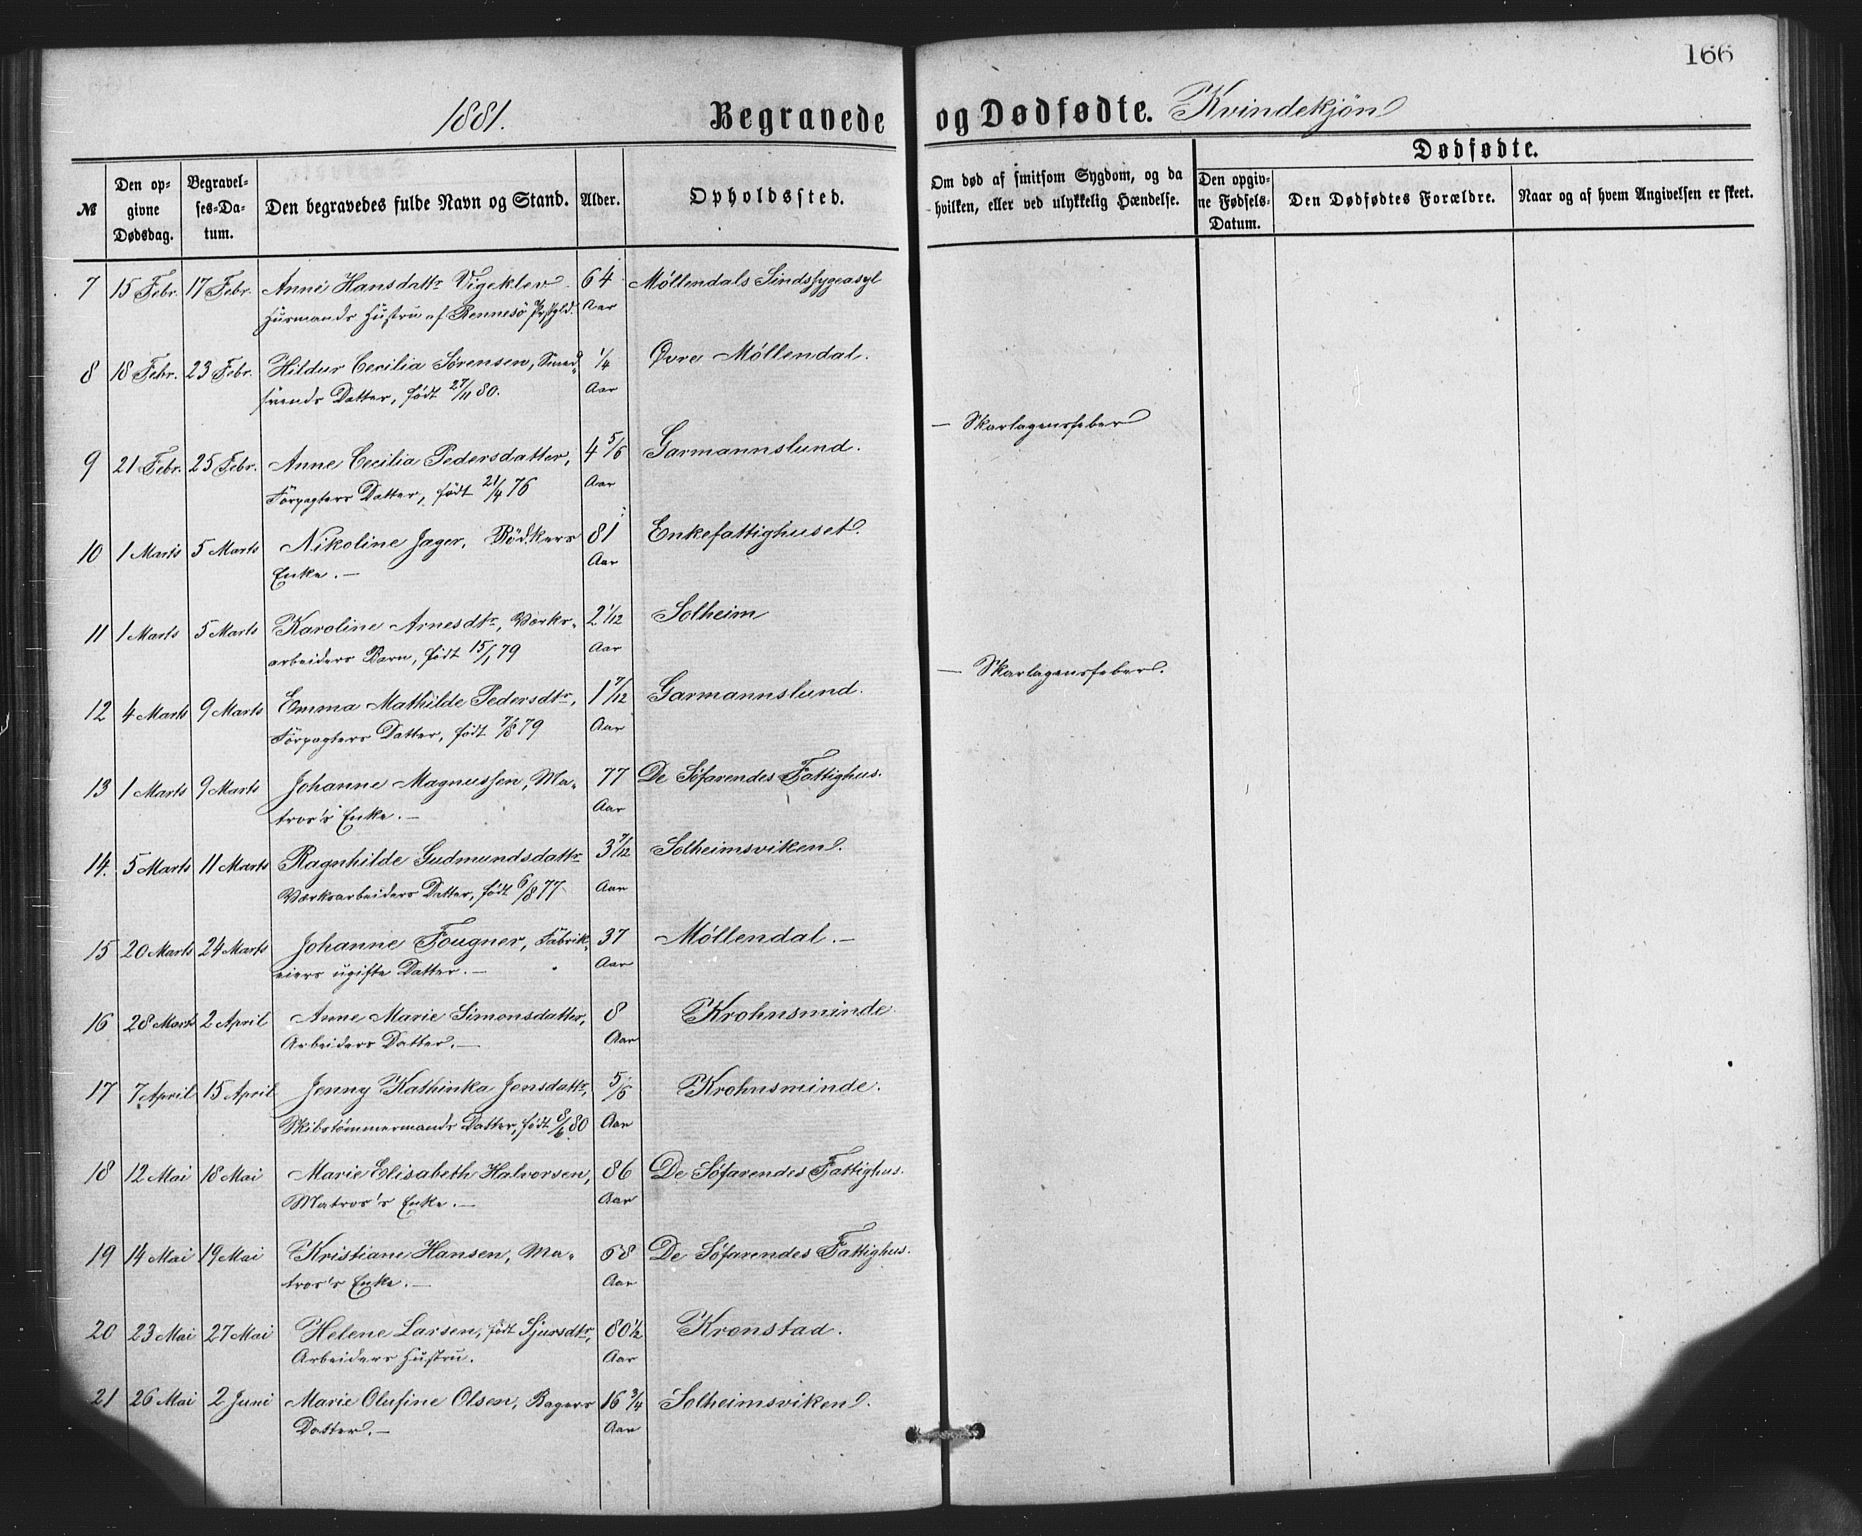 166
1881. Begravede og Dødfødte. Kvindekjøn
№ | Den opgivne Dødsdag. | Begravelses-Datum. | Den begravedes fulde Navn og Stand. | Alder. | Opholdssted. | Om død af smitsom Sygdom, og da hvilken, eller ved ulykkelig Hændelse. | Dødfødte. | Den opgivne Fødsels-Datum. | Den Dødfødtes Forældre. | Naar og af hvem Angivelsen er skeet.
7 15 Febr. 17 Febr. Anne Hansdattr Vigeklev. 64 Møllendals Sindssygeasyl
Husmands Hustru af Rennesø Prstgld. Aar
8 18 Febr. 23 Febr. Hildur Cecilia Sørensen, Smed- 1/4 Øvre Møllendal.
svends Datter, født 27/11 80. Aar
9 21 Febr. 25 Febr. Anne Cecilia Pedersdatter, 4 5/6 Garmannslund. — Skarlagensfeber
Forpagters Datter, født 21/4 76 Aar
10 1 Marts 5 Marts Nikoline Jager, Bødkers 81 Enkefattighuset.
Enke. — Aar
11 1 Marts 5 Marts Karoline Arnesdtr, Værks- 2 1/12 Solheim
arbeiders Barn, født 15/1 79 Aar
12 4 Marts 9 Marts Emma Mathilde Pedersdtr, 1 7/12 Garmannslund. — Skarlagensfeber.
Forpagters Datter, født 7/8 79 Aar
13 1 Marts 9 Marts Johanne Magnussen, Ma- 77 De Søfarendes Fattighus.
tros's Enke. — Aar
14. 5 Marts 11 Marts Ragnhilde Gudmundsdattr 3 7/12 Solheimsviken.
Værksarbeiders Datter, født 6/8 77 Aar
15 20 Marts 24 Marts Johanne Fougner, Fabrik- 37 Møllendal. —
eiers ugifte Datter. — Aar
16 28 Mart 2 April Anne Marie Simonsdatter, 8 Krohnsminde
Arbeiders Datter. — Aar
17 7 April 15 April Jenny Kathinka Jensdattr, 5/6 Krohnsminde.
Skibstømmermands Datter, født 8/6 80 Aar
18 12 Mai 18 Mai Marie Elisabeth Halvorsen, 86 De Søfarendes Fattighus.
Matros's Enke. — Aar
19 14 Mai 19 Mai Kristiane Hansen, Ma- 68 De Søfarendes Fattighus.
tros's Enke. — Aar
20 23 Mai 27 Mai Helene Larsen, født Sjursdtr, 80 1/2 Kronstad.
Arbeiders Hustru. Aar
21 26 Mai 2 Juni Marie Olufine Olsen, Bagers 16 3/4 Solheimsviken.
Datter. — Aar